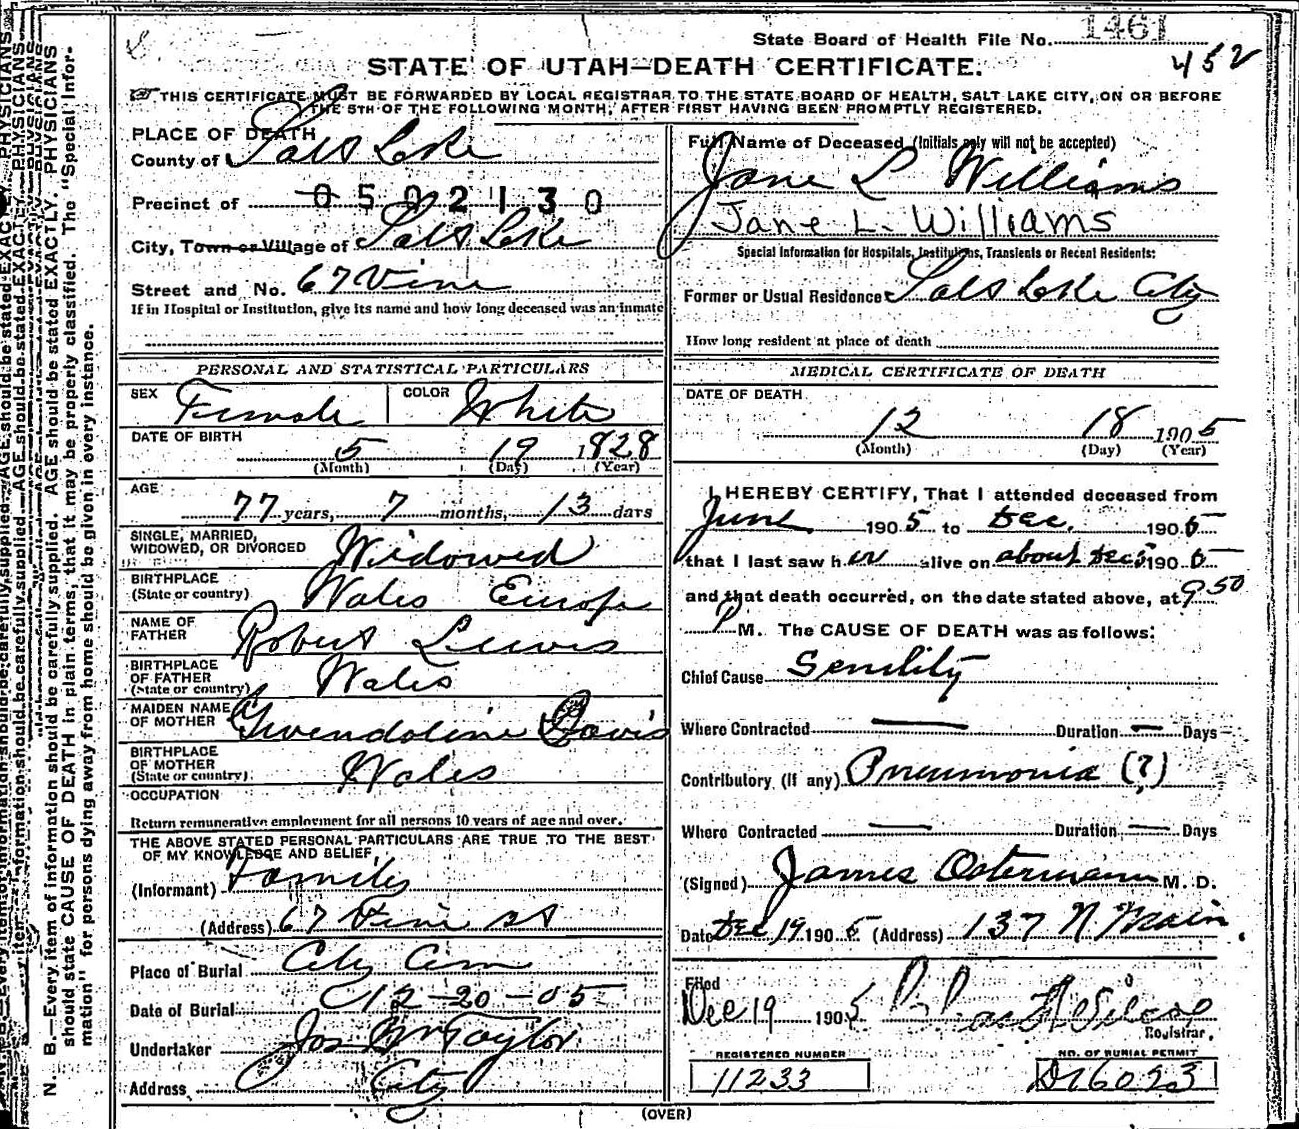 State Board of Health File No. 1461
452
STATE OF UTAH—DEATH CERTIFICATE.
THIS CERTIFICATE MUST BE FORWARDED BY LOCAL REGISTRAR TO THE STATE BOARD OF HEALTH, SALT LAKE CITY, ON OR BEFORE
THE 5TH OF THE FOLLOWING MONTH, AFTER FIRST HAVING BEEN PROMPTLY REGISTERED.
PLACE OF DEATH
County of Salt Lake
Precinct of 0502130
City, Town or Village of Salt Lake
Street and No. 67 Vine
If in Hospital or Institution, give its name and how long deceased was an inmate
Full Name of Deceased (Initials only will not be accepted)
Jane L Williams
Jane L. Williams
Special Information for Hospitals, Institutions, Transients or Recent Residents:
Former or Usual Residence Salt Lake City
How long resident at place of death
PERSONAL AND STATISTICAL PARTICULARS
SEX Female COLOR White
DATE OF BIRTH
5 19 1828
(Month) (Day) (Year)
AGE
77 years, 7 months, 13 days
SINGLE, MARRIED,
WIDOWED, OR DIVORCED Widowed
BIRTHPLACE
(State or country) Wales Europe
NAME OF
FATHER Robert Lewis
BIRTHPLACE
OF FATHER
(State or country) Wales
MAIDEN NAME
OF MOTHER Gwendoline Davis
BIRTHPLACE
OF MOTHER
(State or country) Wales
OCCUPATION
Return remunerative employment for all persons 10 years of age and over.
THE ABOVE STATED PERSONAL PARTICULARS ARE TRUE TO THE BEST
OF MY KNOWLEDGE AND BELIEF,
(Informant) Family
(Address) 67 Vine St
Place of Burial City Cem
Date of Burial 12-20-05
Undertaker Jos Wm Taylor
Address City
MEDICAL CERTIFICATE OF DEATH
DATE OF DEATH
12 18 1905
(Month) (Day) (Year)
I HEREBY CERTIFY, That I attended deceased from
June 1905 to Dec. 1905
that I last saw her alive on about Dec 5 1905
and that death occurred, on the date stated above, at 9.50
P M. The CAUSE OF DEATH was as follows:
Chief Cause Senility
Where Contracted — Duration — Days
Contributory (if any) Pneumonia (?)
Where Contracted — Duration — Days
(Signed) James Ostermann M. D.
Date Dec 19 1905 (Address) 137 N Main
Filed
Dec 19 1905
Registrar.
REGISTERED NUMBER
11233
NO. OF BURIAL PERMIT
D16023
(OVER)
N. B.—Every item of information should be carefully supplied. AGE should be stated EXACTLY. PHYSICIANS
should state CAUSE OF DEATH in plain terms, that it may be properly classified. The "Special Infor-
mation" for persons dying away from home should be given in every instance.